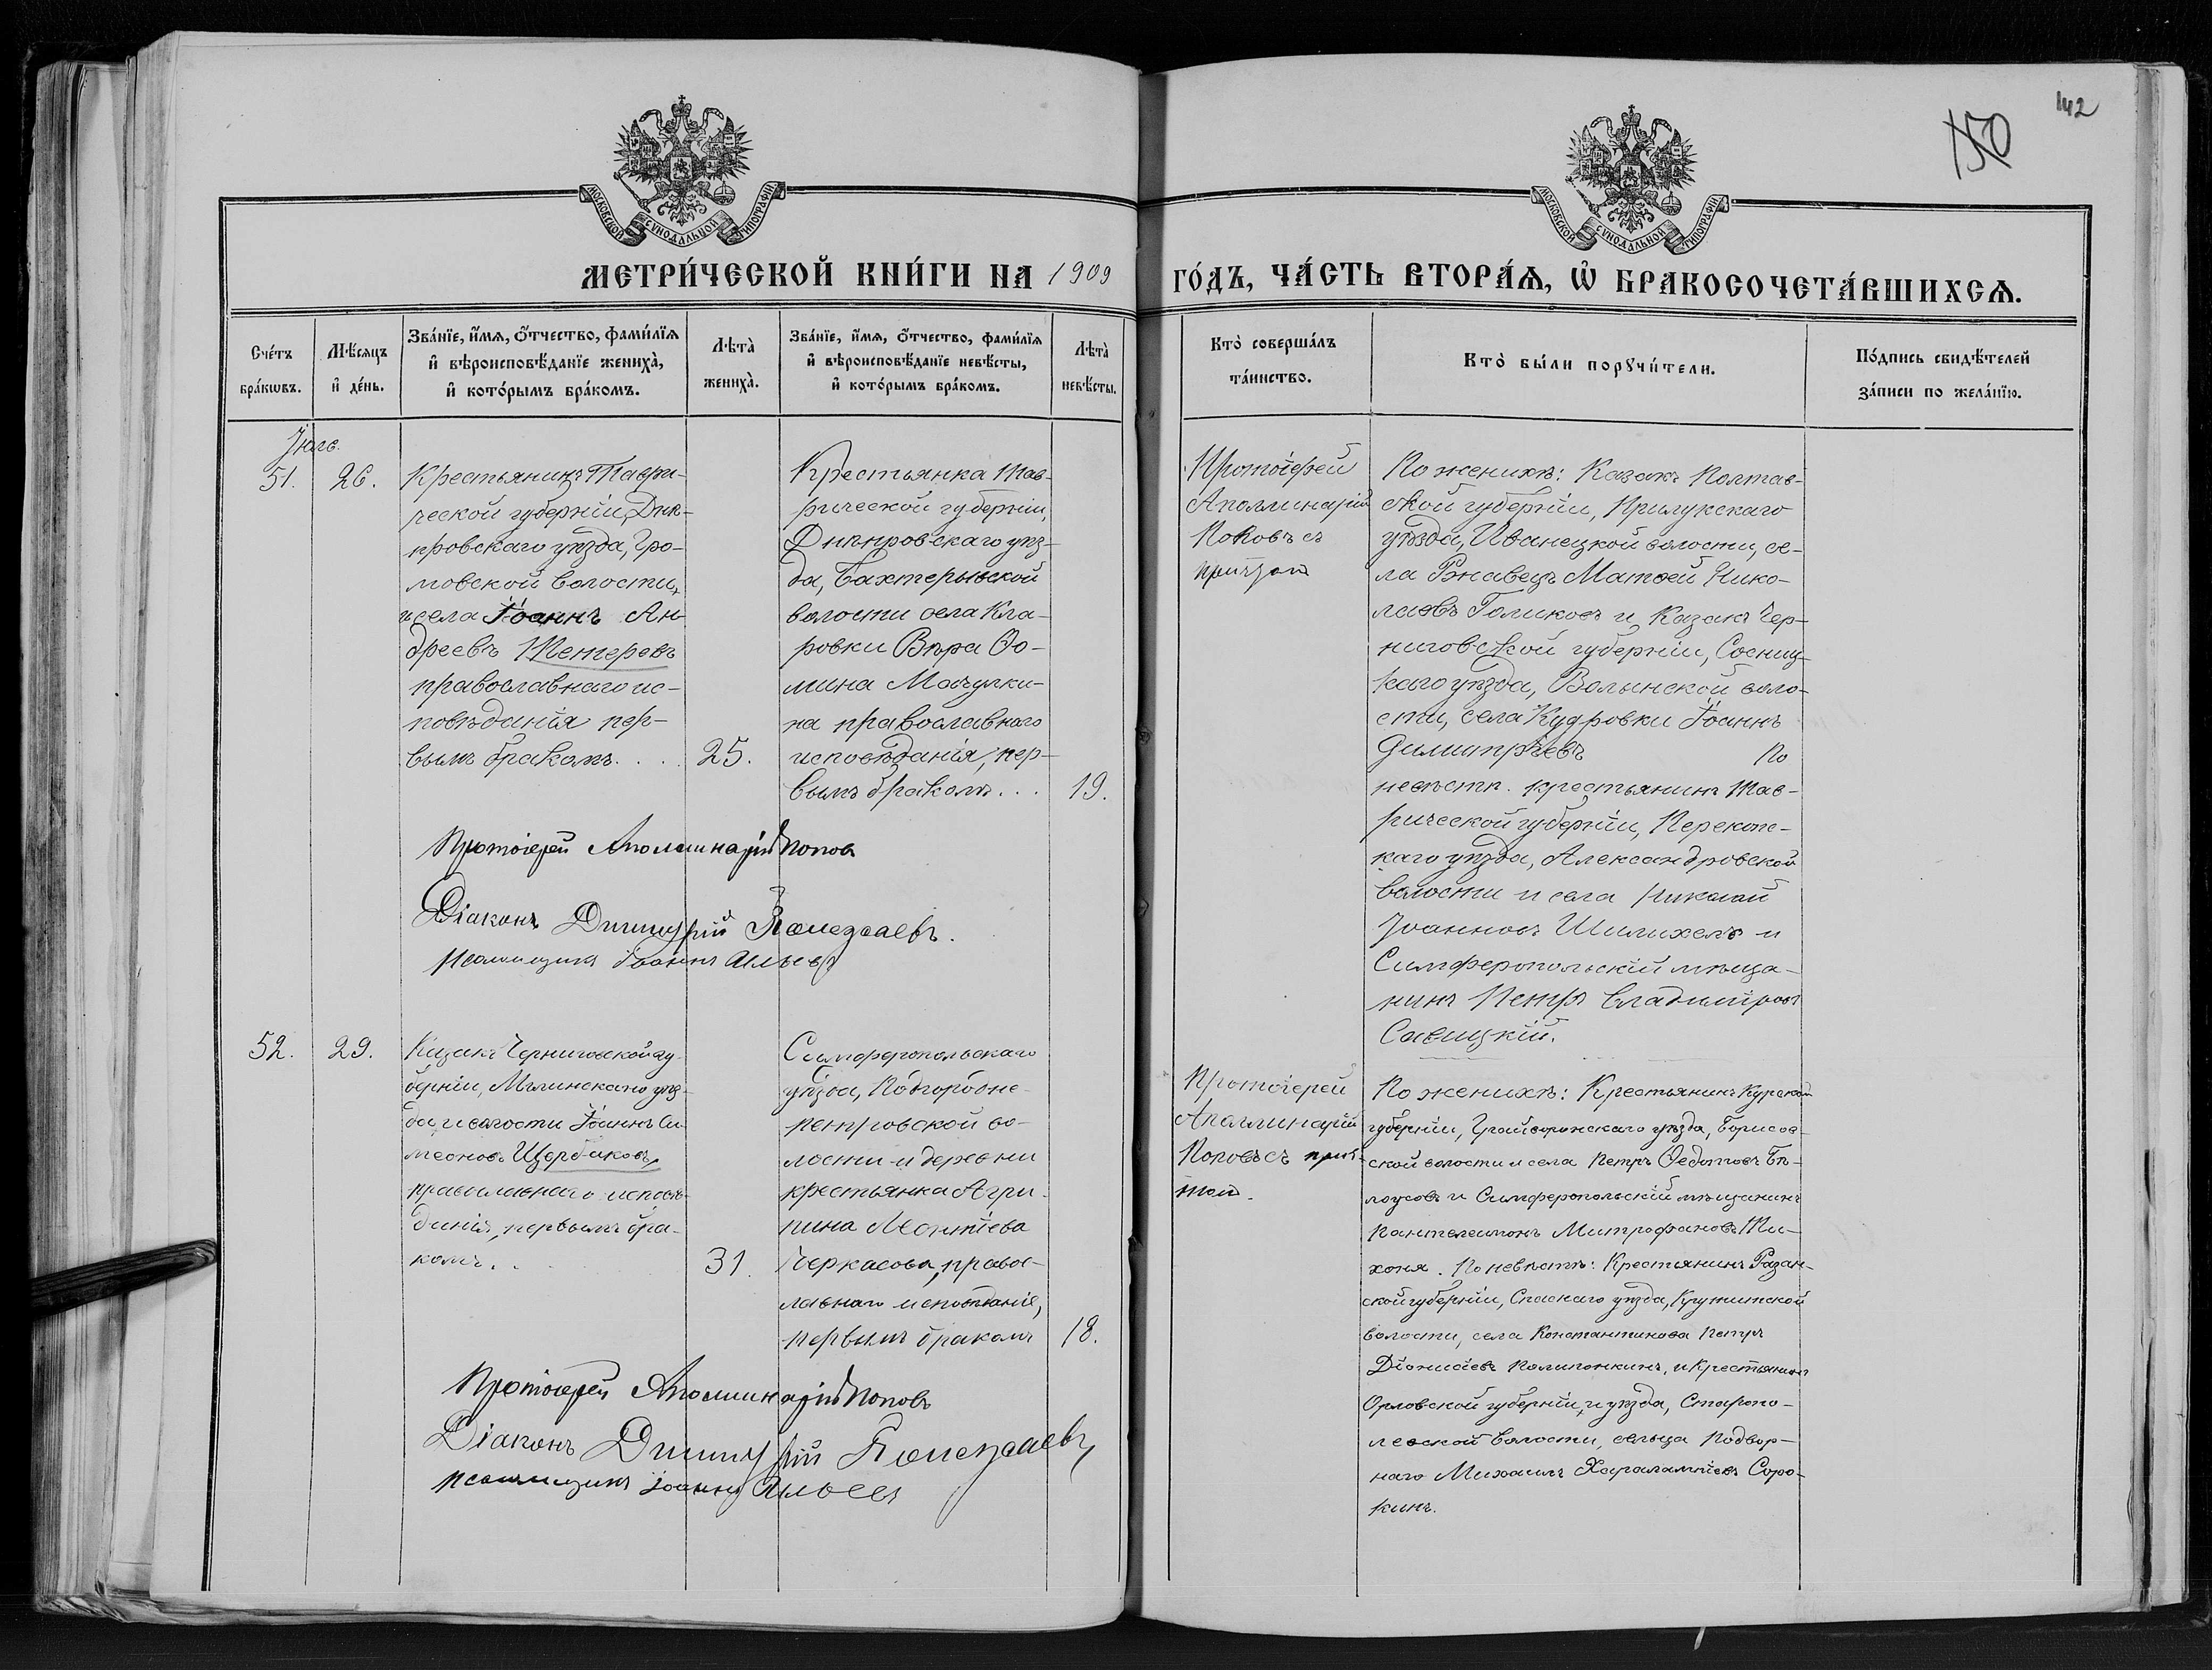 142
150
МОСКОВСКОЙ СѴНОДАЛЬНОЙ ТИПОГРАФІИ
МОСКОВСКОЙ СѴНОДАЛЬНОЙ ТИПОГРАФІИ
МЕТРИ́ЧЕСКОЙ КНИ́ГИ НА 1909
ГО́ДЪ, ЧА́СТЬ ВТОРА́Ѧ, Ѡ҆ БРАКОСОЧЕТА́ВШИХСѦ.
Сче́тъ
бра́кѡвъ.
Мѣ́сяцъ
и҆ де́нь.
Зва́нїе, и҆́мѧ, ѻ҆́тчество, фами́лїѧ
и҆ вѣроисповѣ́данїе жениха̀,
и҆ кото́рымъ бра́комъ.
Лѣта̀
жениха̀.
Зва́нїе, и҆́мѧ, ѻ҆́тчество, фами́лїѧ
и҆ вѣроисповѣ́данїе невѣ́сты,
и҆ кото́рымъ бра́комъ.
Лѣта̀
невѣ́сты.
Кто̀ соверша́лъ
та́инство.
Кто̀ бы́ли порꙋчи́тели.
По́дпись свидѣ́телей
за́писи по жела́нїю.
Іюль.
51.
26.
Крестьянинъ Таври-
ческой губерніи, Днѣ-
провскаго уѣзда, Гро-
мовской волости,
и села Іоаннъ Ан
дреевъ Тетеревъ
православнаго ис-
повѣданія пер-
вымъ бракомъ. . . .
25.
Крестьянка Тав-
рической губерніи,
Днѣпровскаго уѣз-
да, Бахтерывской
волости села Кла-
ровки Вѣра Ѳо-
мина Мачулки-
на православнаго
исповѣданія, пер-
вымъ бракомъ . . .
19.
Протоіерей
Аполлинарій
Поповъ съ
причтомъ
По женихѣ: Казакъ Полтав-
ской губерніи, Прилукскаго
уѣзда, Иванецкой волости, се-
ла Ржавецъ Матѳей Нико-
лаевъ Голиковъ и Казакъ Чер-
ниговской губерніи, Сосниц-
каго уѣзда, Волынской воло-
сти, села Кудровки Іоаннъ
Димитріевъ По
невѣстѣ. крестьянинъ Тав-
рической губерніи, Перекопс-
каго уѣзда, Александровской
волости и села Николай
Іоанновъ Шилихелъ и
Симферопольскій мѣща-
нинъ Петръ Владиміровъ
Савицкій.
Протоіерей Аполлинарій Поповъ
Діаконъ Димитрій
Псаломщикъ Іоаннъ Ильевъ
52.
29.
Казакъ Черниговской гу-
берніи, Мглинскаго уѣз-
да, и волости Іоаннъ Си-
меоновъ Щербаковъ,
православнаго исповѣ-
данія, первымъ бра-
комъ. . .
31.
Симферопольскаго
уѣзда, Подгородне-
петровской во-
лости и деревни
крестьянка Агри-
пина Леонтіева
Черкасова, право-
лавнаго исповѣданія,
первымъ бракомъ
18.
Протоіерей
Аполлинарій
Поповъ съ прич-
томъ.
По женихѣ: Крестьянинъ Курской
губерніи, Грайворонскаго уѣзда, Борисов-
ской волости и села Петръ Ѳедотовъ Бѣ-
лоусовъ и Симферопольскій мѣщанинъ
Пантелеимонъ Митрофановъ Ти-
хоня. По невѣстѣ: Крестьянинъ Рязан-
ской губерніи, Спаскаго уѣзда,
волости, села Константинова Петръ
Діонисіевъ Полипонкинъ, и Крестьянинъ
Орловской губерніи, и уѣзда, Старопо-
левской волости, сельца Подвор-
наго Михаилъ Харалампіевъ Соро-
кинъ.
Протоіерей Аполлинарій Поповъ
Діаконъ Димитрій
Псаломщикъ Іоаннъ Ильевъ